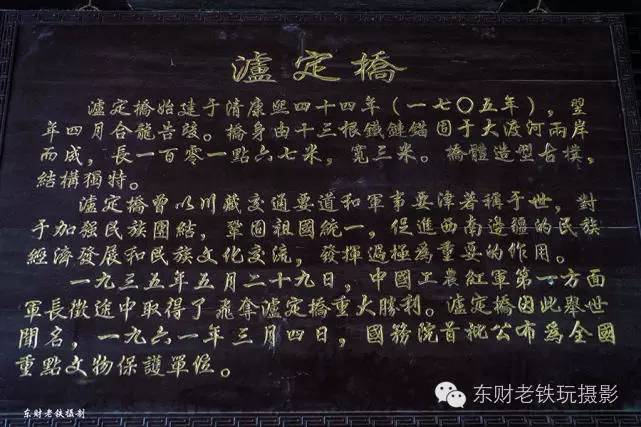 瀘定橋
瀘定橋始建于清康熙四十四年（一七〇五年），翌
年四月合龍告竣。橋身由十三根鐵鏈錨固于大渡河兩岸
而成，長一百零一點六七米，寬三米。橋體造型古樸，
結構獨特。
瀘定橋曾以川藏交通要道和軍事要津著稱于世，對
于加强民族團結，鞏固祖國統一，促進西南邊疆的民族
經濟發展和民族文化交流，發揮過極為重要的作用。
一九三五年五月二十九日，中國工農紅軍第一方面
軍長徵途中取得了飛奪瀘定橋重大勝利。瀘定橋因此舉世
聞名，一九六一年三月四日，國務院首批公布為全國
重點文物保護單位。
东财老铁摄制
东财老铁玩摄影